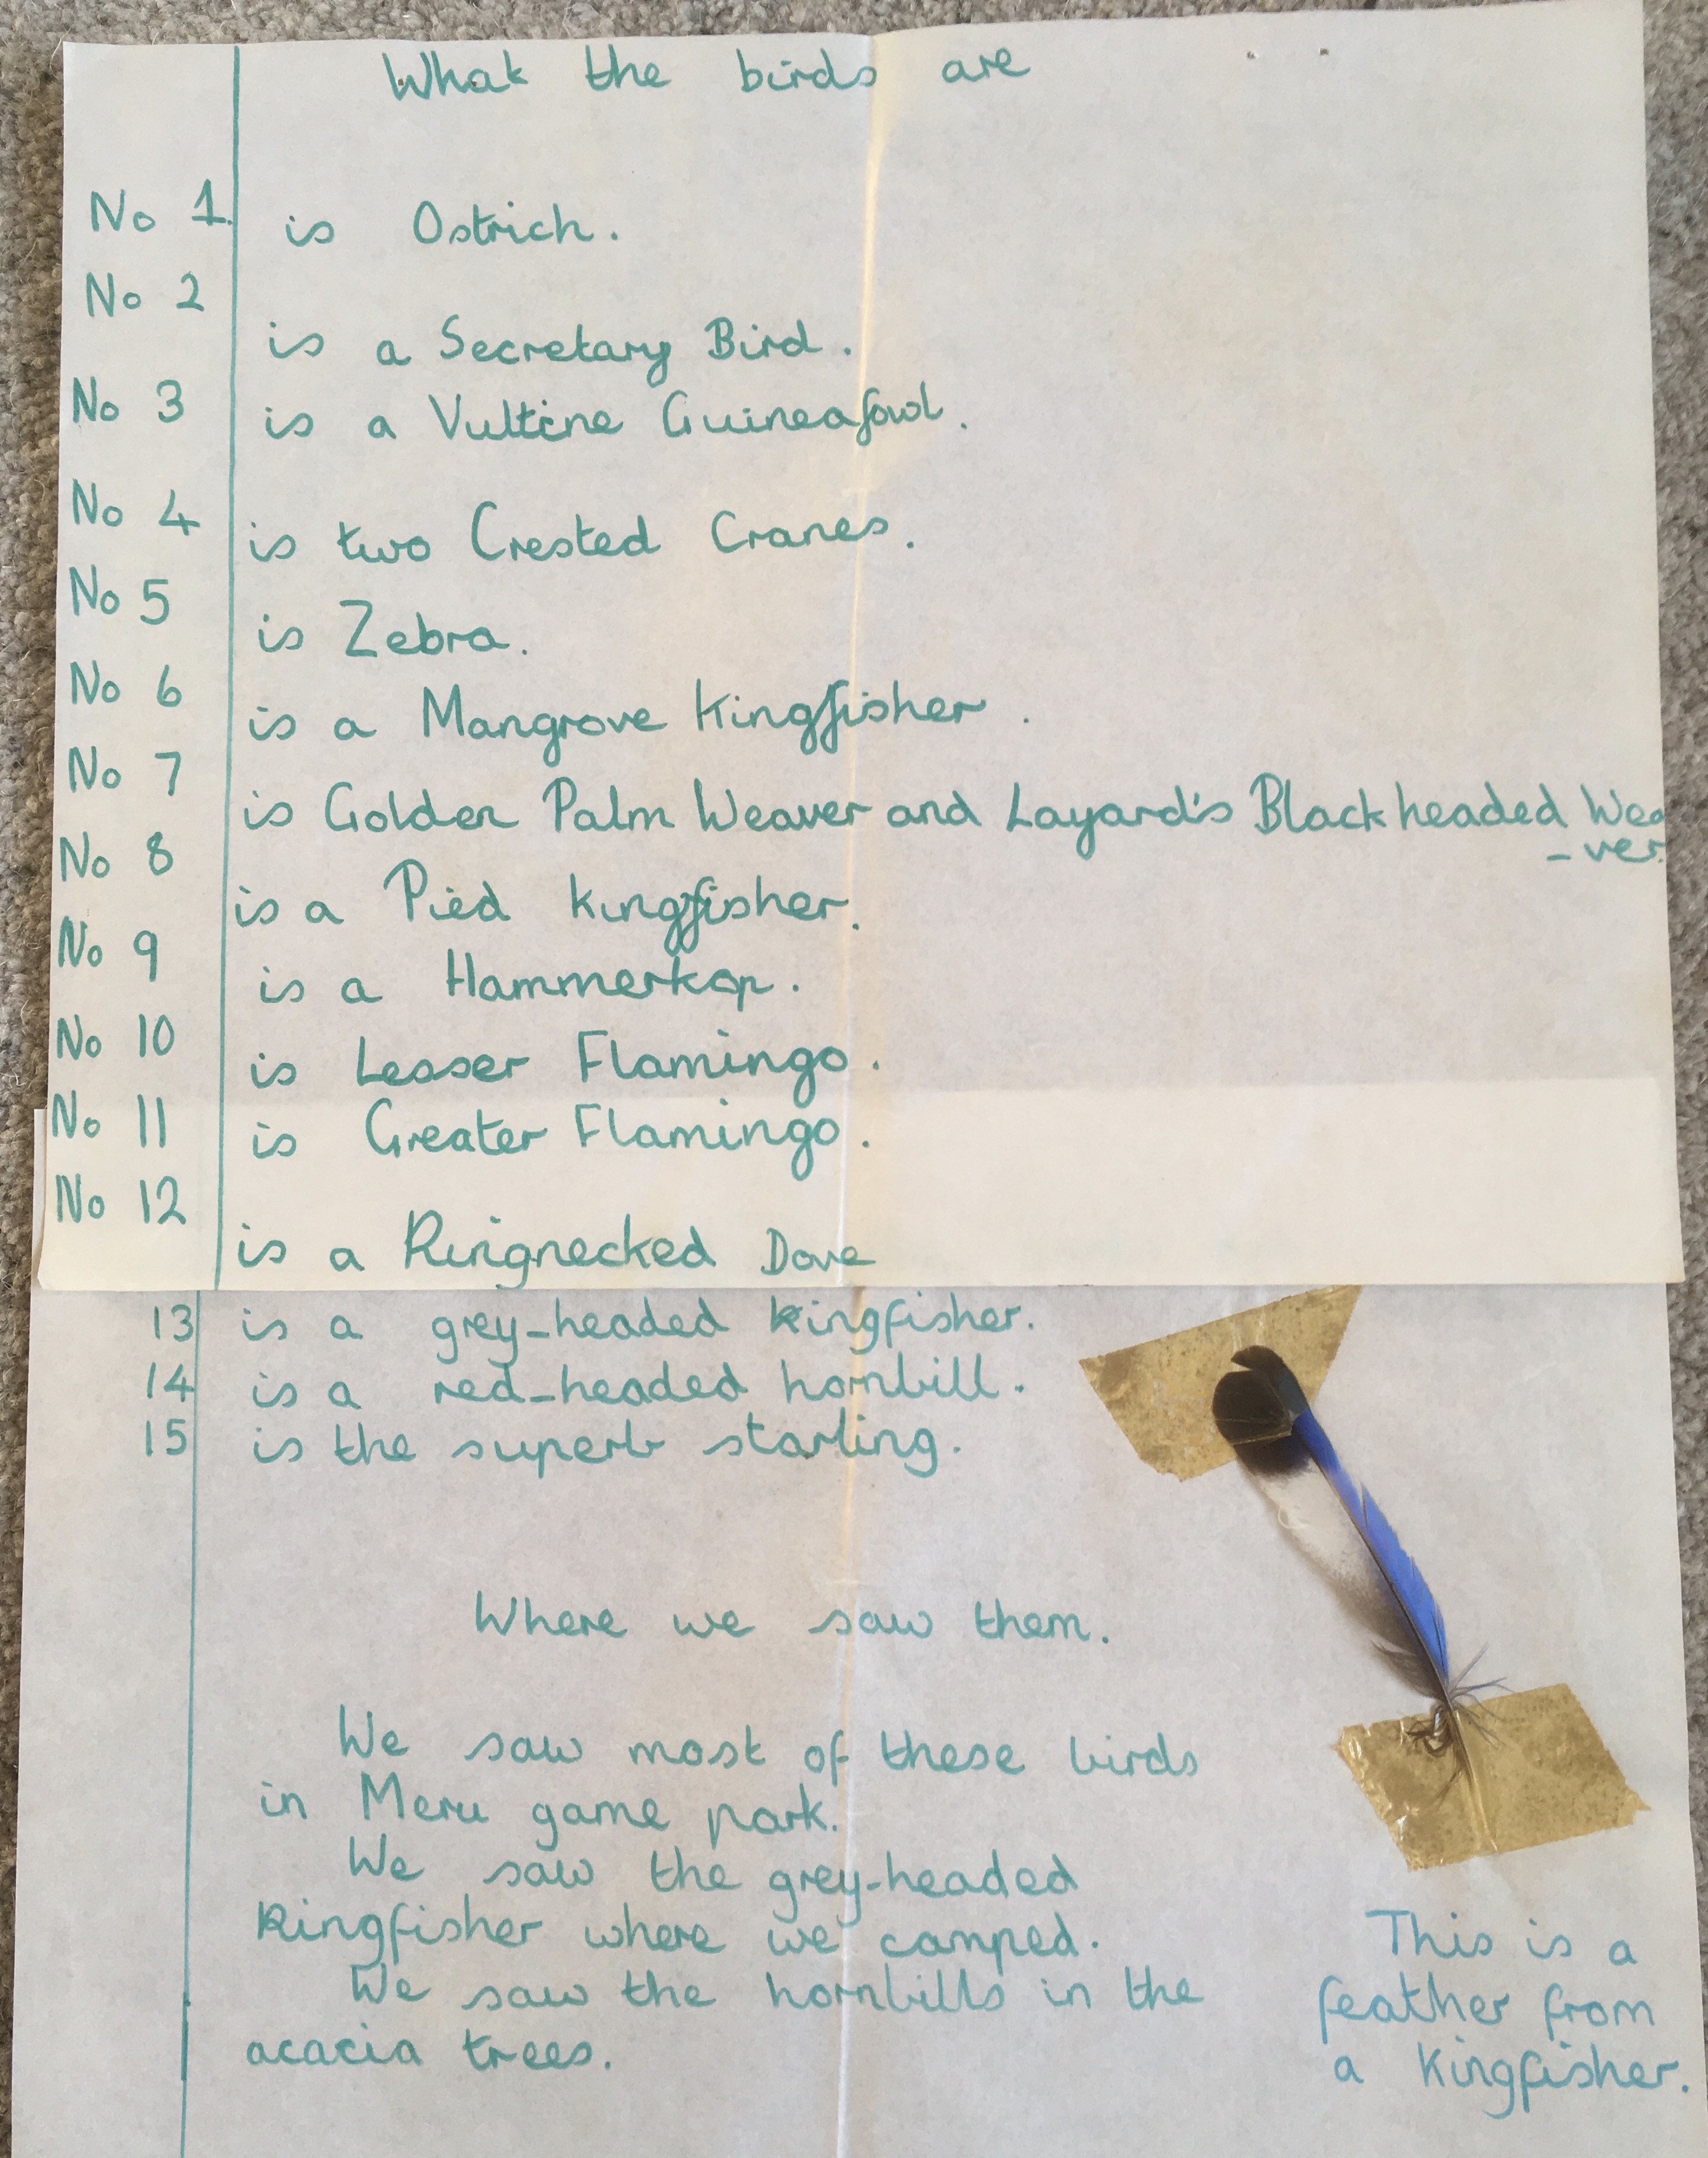 What the birds are
No 1. is Ostrich.
No 2 is a Secretary Bird.
No 3 is a Vultine Guineafowl.
No 4 is two Crested Cranes.
No 5 is Zebra.
No 6 is a Mangrove Kingfisher.
No 7 is Golden Palm Weaver and Layard's Blackheaded Wea
-ver.
No 8 is a Pied Kingfisher.
No 9 is a Hammerkop.
No 10 is Lesser Flamingo.
No 11 is Greater Flamingo.
No 12 is a Ringnecked Dove
13 is a grey-headed kingfisher.
14 is a red-headed hornbill.
15 is the superb starling.
Where we saw them.
We saw most of these birds
in Meru game park.
We saw the grey-headed
Kingfisher where we camped.
We saw the hornbills in the
acacia trees.
This is a
feather from
a Kingfisher.